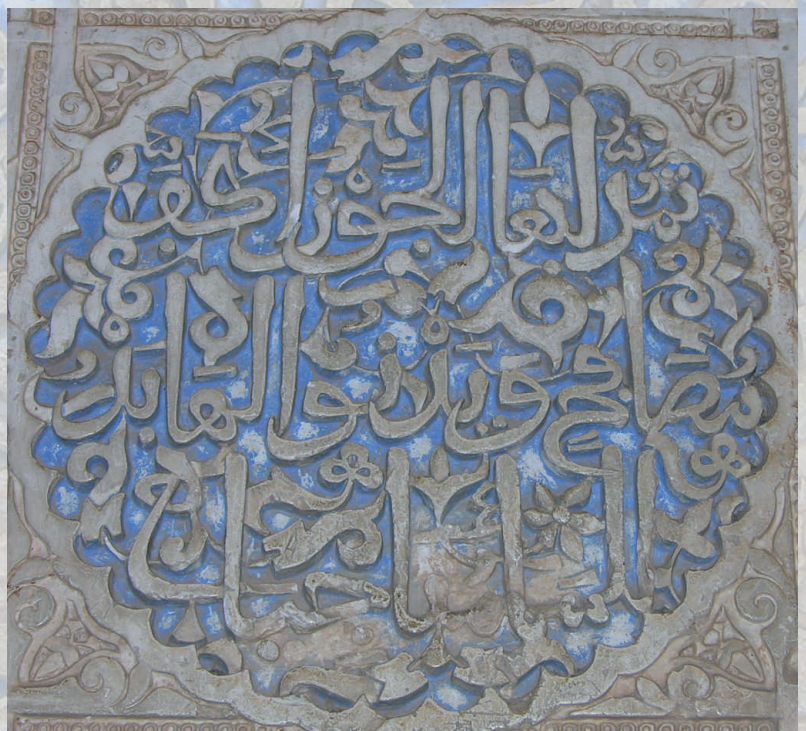 تمد لها الجوزا كف
مصافح ويدنو لها بدر
السما مناجيا